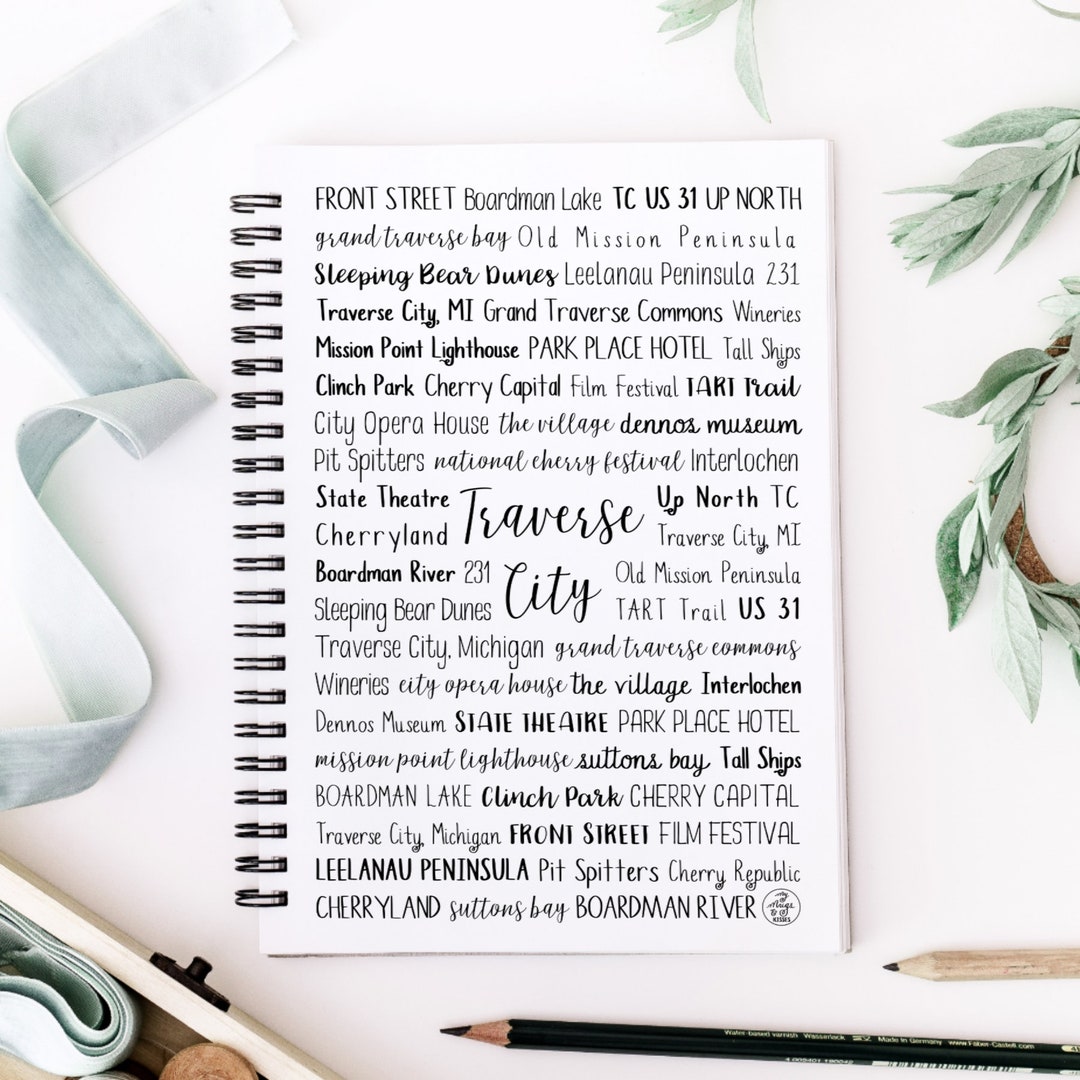 FRONT STREET Boardman Lake TC US 31 UP NORTH
grand traverse bay Old Mission Peninsula
Sleeping Bear Dunes Leelanau Peninsula 231
Traverse City, MI Grand Traverse Commons Wineries
Mission Point Lighthouse PARK PLACE HOTEL Tall Ships
Clinch Park Cherry Capital Film Festival TART Trail
City Opera House the village dennos museum
Pit Spitters national cherry festival Interlochen
State Theatre Traverse Up North TC
Cherryland Traverse City, MI
Boardman River 231 City Old Mission Peninsula
Sleeping Bear Dunes TART Trail US 31
Traverse City, Michigan grand traverse commons
Wineries city opera house the village Interlochen
Dennos Museum STATE THEATRE PARK PLACE HOTEL
mission point lighthouse suttons bay Tall Ships
BOARDMAN LAKE Clinch Park CHERRY CAPITAL
Traverse City, Michigan FRONT STREET FILM FESTIVAL
LEELANAU PENINSULA Pit Spitters Cherry Republic
CHERRYLAND suttons bay BOARDMAN RIVER
KISSES
Water-based varnish Wasserlack Made in Germany www.Faber-Castell.com